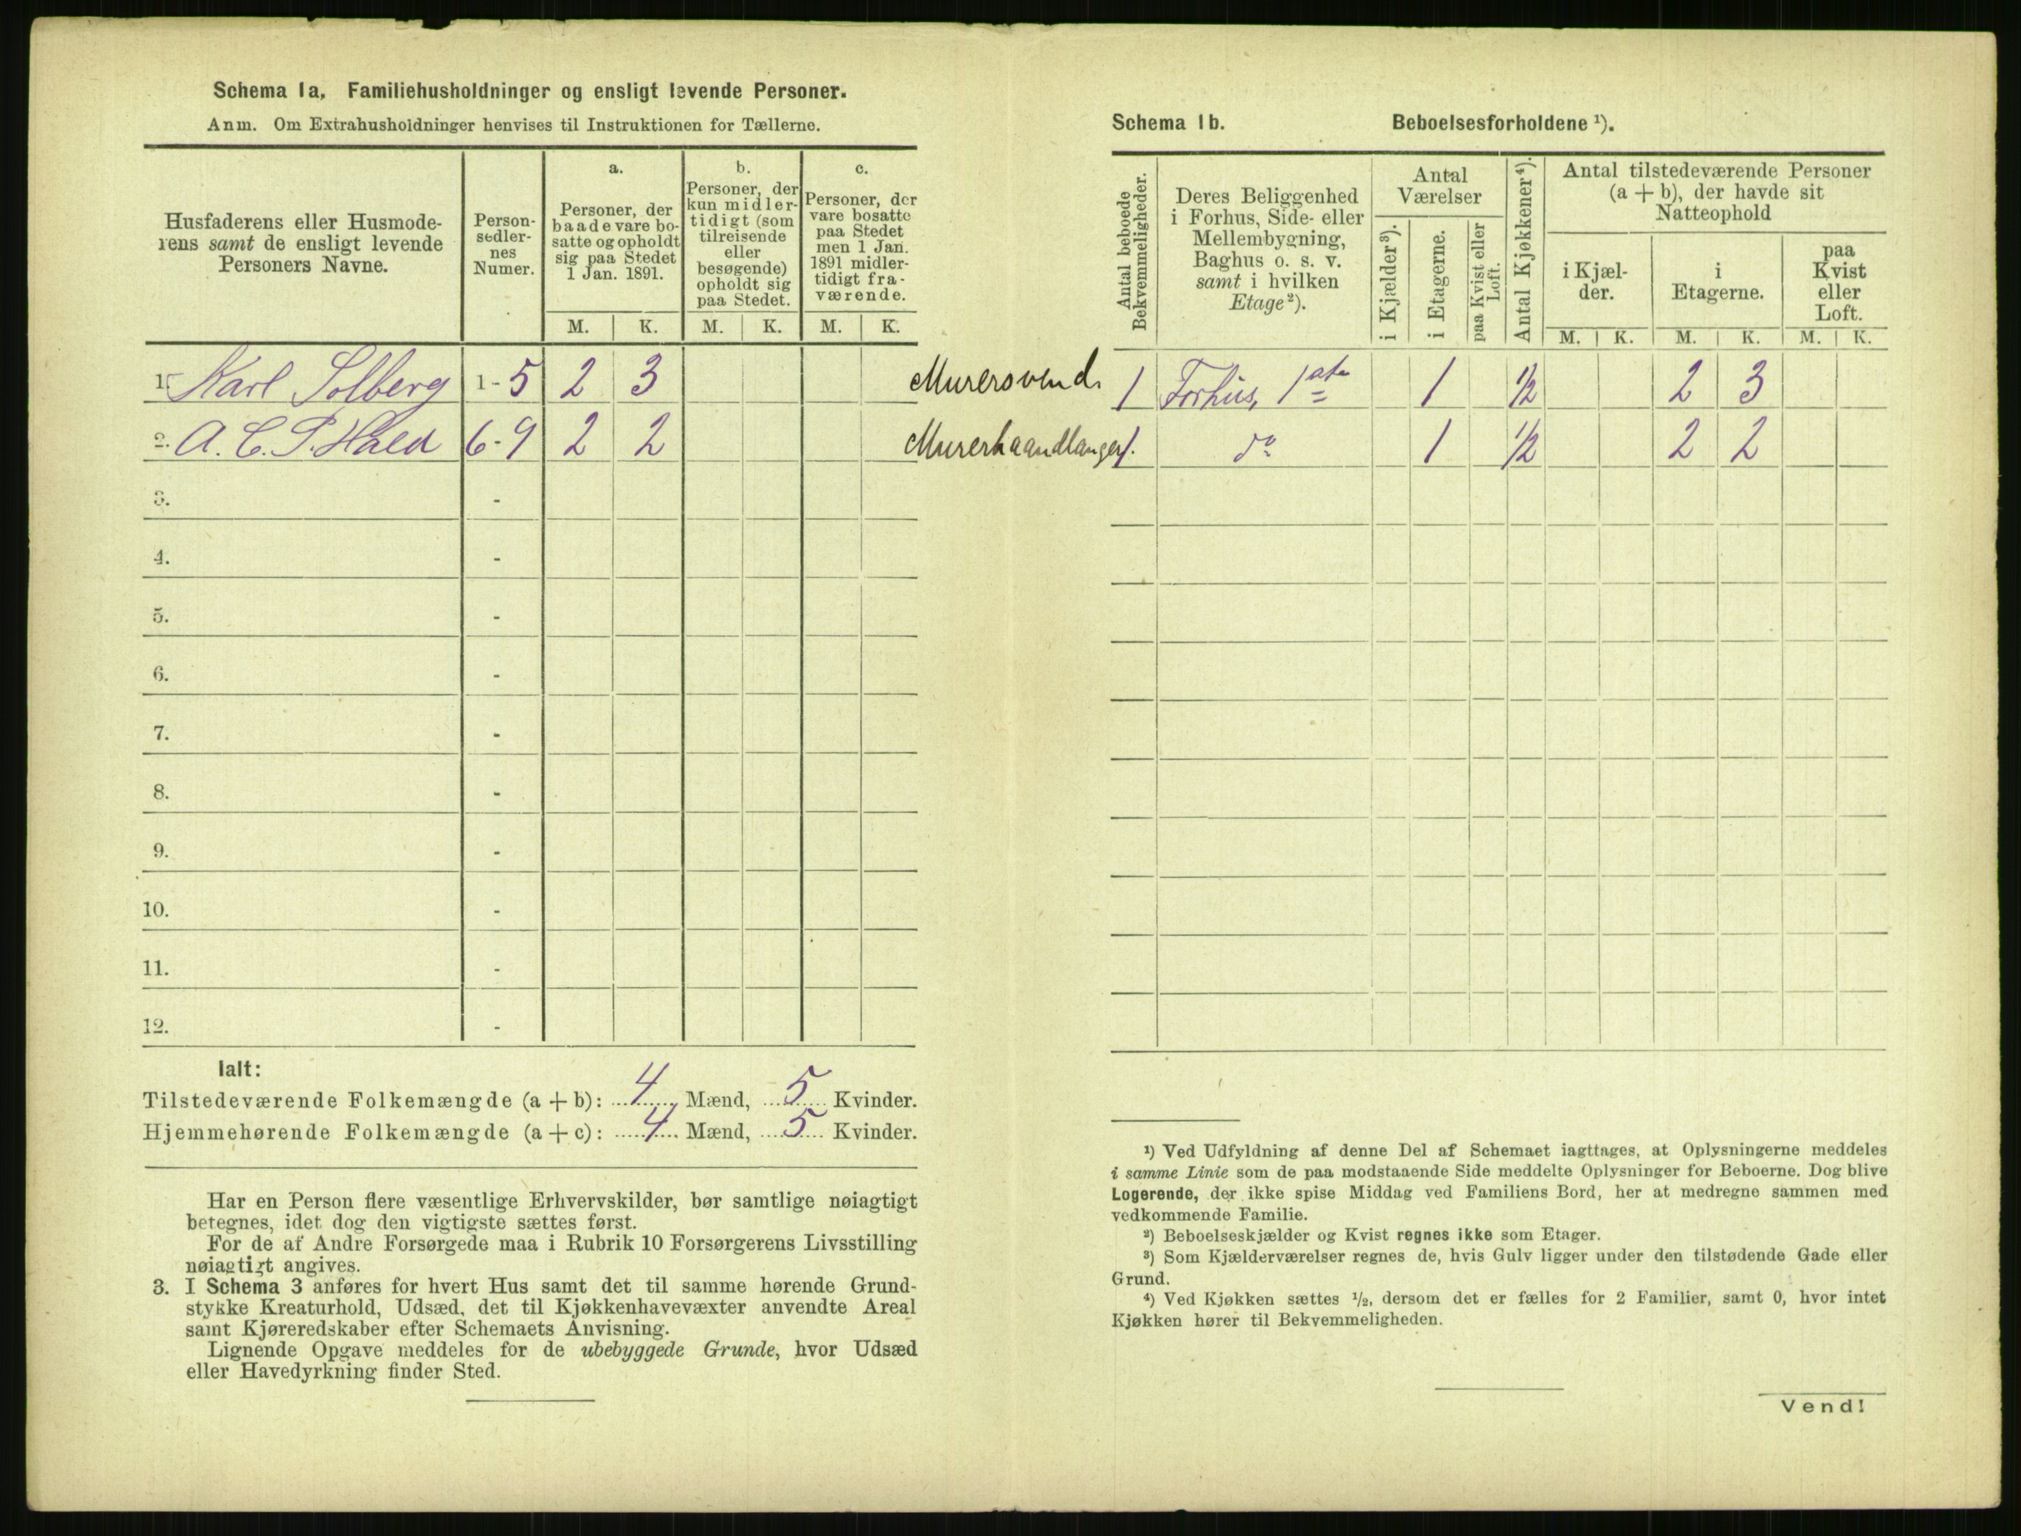 Schema 1a. Familiehusholdninger og ensligt levende Personer.
Anm. Om Extrahusholdninger henvises til Instruktionen for Tællerne.
Husfaderens eller Husmode-
rens samt de ensligt levende
Personers Navne.
Person-
sedler-
nes
Numer.
a.
Personer, der
baade vare bo-
satte og opholdt
sig paa Stedet
1 Jan. 1891.
b.
Personer, der
kun midler-
tidigt (som
tilreisende
eller
besøgende)
opholdt sig
paa Stedet.
c.
Personer, der
vare bosatte
paa Stedet
men 1 Jan.
1891 midler-
tidigt fra-
værende.
M. K. M. K. M. K.
1. Karl Solberg 1-5 2 3 Murersvend.
2. A. C. P. Hald 6-9 2 2 Murerhaandlanger
3. -
4. -
5. -
6. -
7. -
8. -
9. -
10. -
11. -
12. -
Ialt:
Tilstedeværende Folkemængde (a + b): 4 Mænd, 5 Kvinder.
Hjemmehørende Folkemængde (a + c): 4 Mænd, 5 Kvinder.
Har en Person flere væsentlige Erhvervskilder, bør samtlige nøiagtigt
betegnes, idet dog den vigtigste sættes først.
For de af Andre Forsørgede maa i Rubrik 10 Forsørgerens Livsstilling
nøiagtigt angives.
3. I Schema 3 anføres for hvert Hus samt det til samme hørende Grund-
stykke Kreaturhold, Udsæd, det til Kjøkkenhavevæxter anvendte Areal
samt Kjøreredskaber efter Schemaets Anvisning.
Lignende Opgave meddeles for de ubebyggede Grunde, hvor Udsæd
eller Havedyrkning finder Sted.
Schema 1b. Beboelsesforholdene ¹).
Antal beboede
Bekvemmeligheder.
Deres Beliggenhed
i Forhus, Side- eller
Mellembygning,
Baghus o. s. v.
samt i hvilken
Etage²).
Antal
Værelser
i Kjælder³).
i Etagerne.
paa Kvist eller
Loft.
Antal Kjøkkener⁴).
Antal tilstedeværende Personer
(a + b), der havde sit
Natteophold
i Kjæl-
der.
i
Etagerne.
paa
Kvist
eller
Loft.
M. K. M. K. M. K.
1 Forhus, 1ste 1 1/2 2 3
1. do 1 1/2 2 2
¹) Ved Udfyldning af denne Del af Schemaet iagttages, at Oplysningerne meddeles
i samme Linie som de paa modstaaende Side meddelte Oplysninger for Beboerne. Dog blive
Logerende, der ikke spise Middag ved Familiens Bord, her at medregne sammen med
vedkommende Familie.
²) Beboelseskjælder og Kvist regnes ikke som Etager.
³) Som Kjælderværelser regnes de, hvis Gulv ligger under den tilstødende Gade eller
Grund.
⁴) Ved Kjøkken sættes ½, dersom det er fælles for 2 Familier, samt 0, hvor intet
Kjøkken hører til Bekvemmeligheden.
Vend!